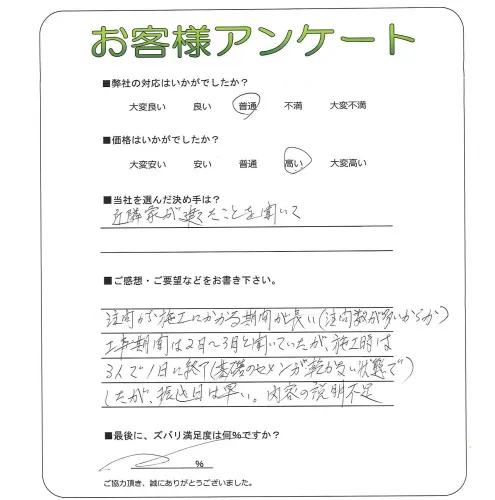 お客様アンケート
■弊社の対応はいかがでしたか？
大変良い 良い 普通 不満 大変不満
■価格はいかがでしたか？
大変安い 安い 普通 高い 大変高い
■当社を選んだ決め手は？
近隣家が建てたことを聞いて
■ご感想・ご要望などをお書き下さい。
注問から施工にかかる期間が長い(注問数が多いからか)
工事期間は2日〜3日と聞いていたが、施工時は
3人で1日に終了(基礎のセメンが乾かない状態で)
したが、振込日は早い。内容の説明不足
■最後に、ズバリ満足度は何%ですか？
%
ご協力頂き、誠にありがとうございました。